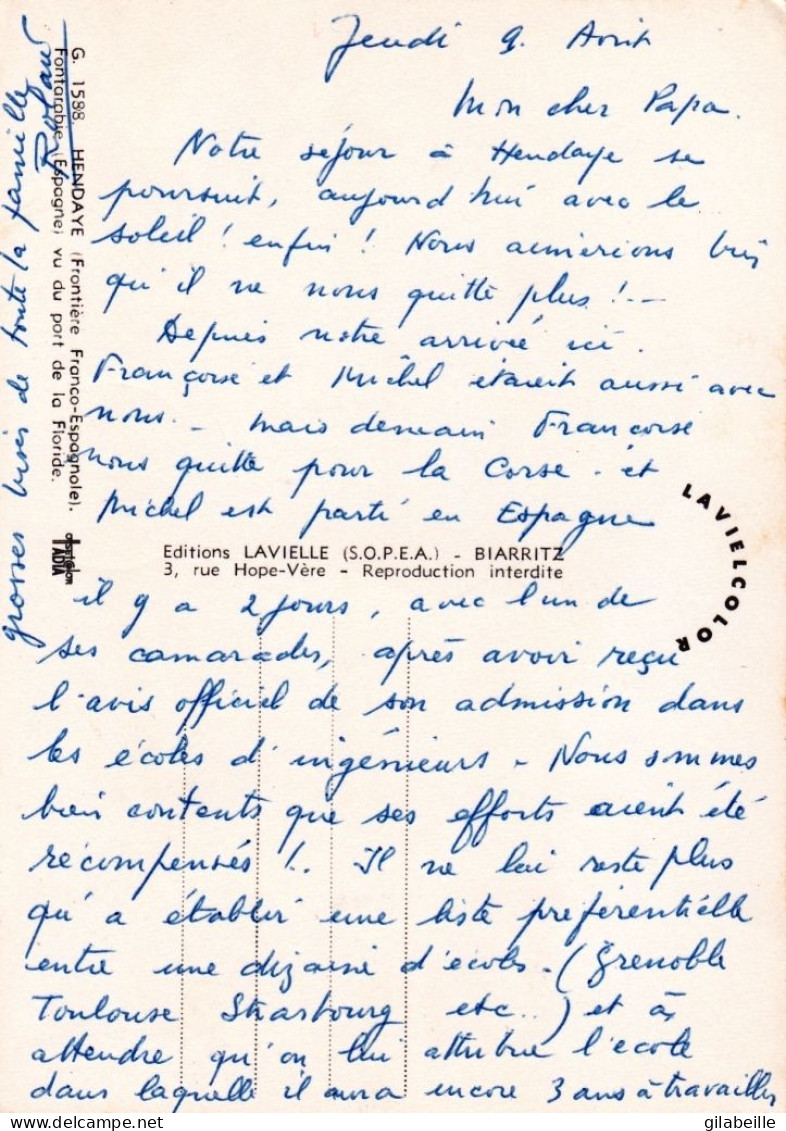 Jeudi 9. Août
Mon cher Papa.
Notre séjour à Hendaye se
poursuit, aujourd'hui avec le
soleil ! enfin ! Nous aimerions bien
qu'il ne nous quitte plus ! --
Depuis notre arrivée, ici.
Françoise et Michel étaient aussi avec
nous. - mais demain Françoise
nous quitte pour la Corse. et
Michel est parti en Espagne
il y a 2 jours, avec l'un de
ses camarades, après avoir reçu
l'avis officiel de son admission dans
les écoles d'ingénieurs - Nous sommes
bien contents que ses efforts aient été
récompensés !.. Il ne lui reste plus
qu'à établir une liste préférentielle
entre une dizaine d'écoles. (Grenoble
Toulouse Strasbourg etc..) et à
attendre qu'on lui attribue l'école
dans laquelle il aura encore 3 ans à travailler
grosses bises de toute la famille
Roland
G. 1588. HENDAYE (Frontière Franco-Espagnole).
Fontarabie (Espagne) vu du port de la Floride.
IADIA
Editions LAVIELLE (S.O.P.E.A.) - BIARRITZ
3, rue Hope-Vère - Reproduction interdite
LAVIELCOLOR
gilabeille